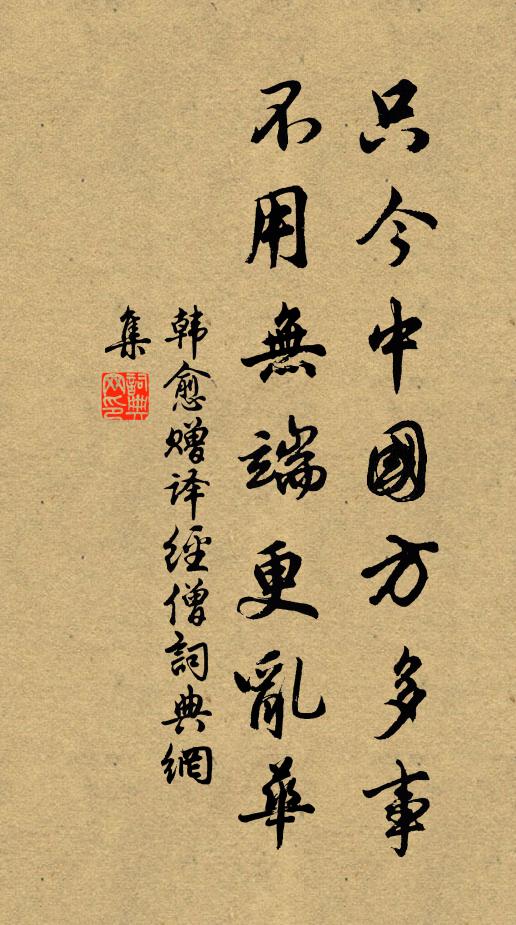 只今中國方多事
不用無端更亂華
韩愈赠译經僧詞典網
集
詞典網印